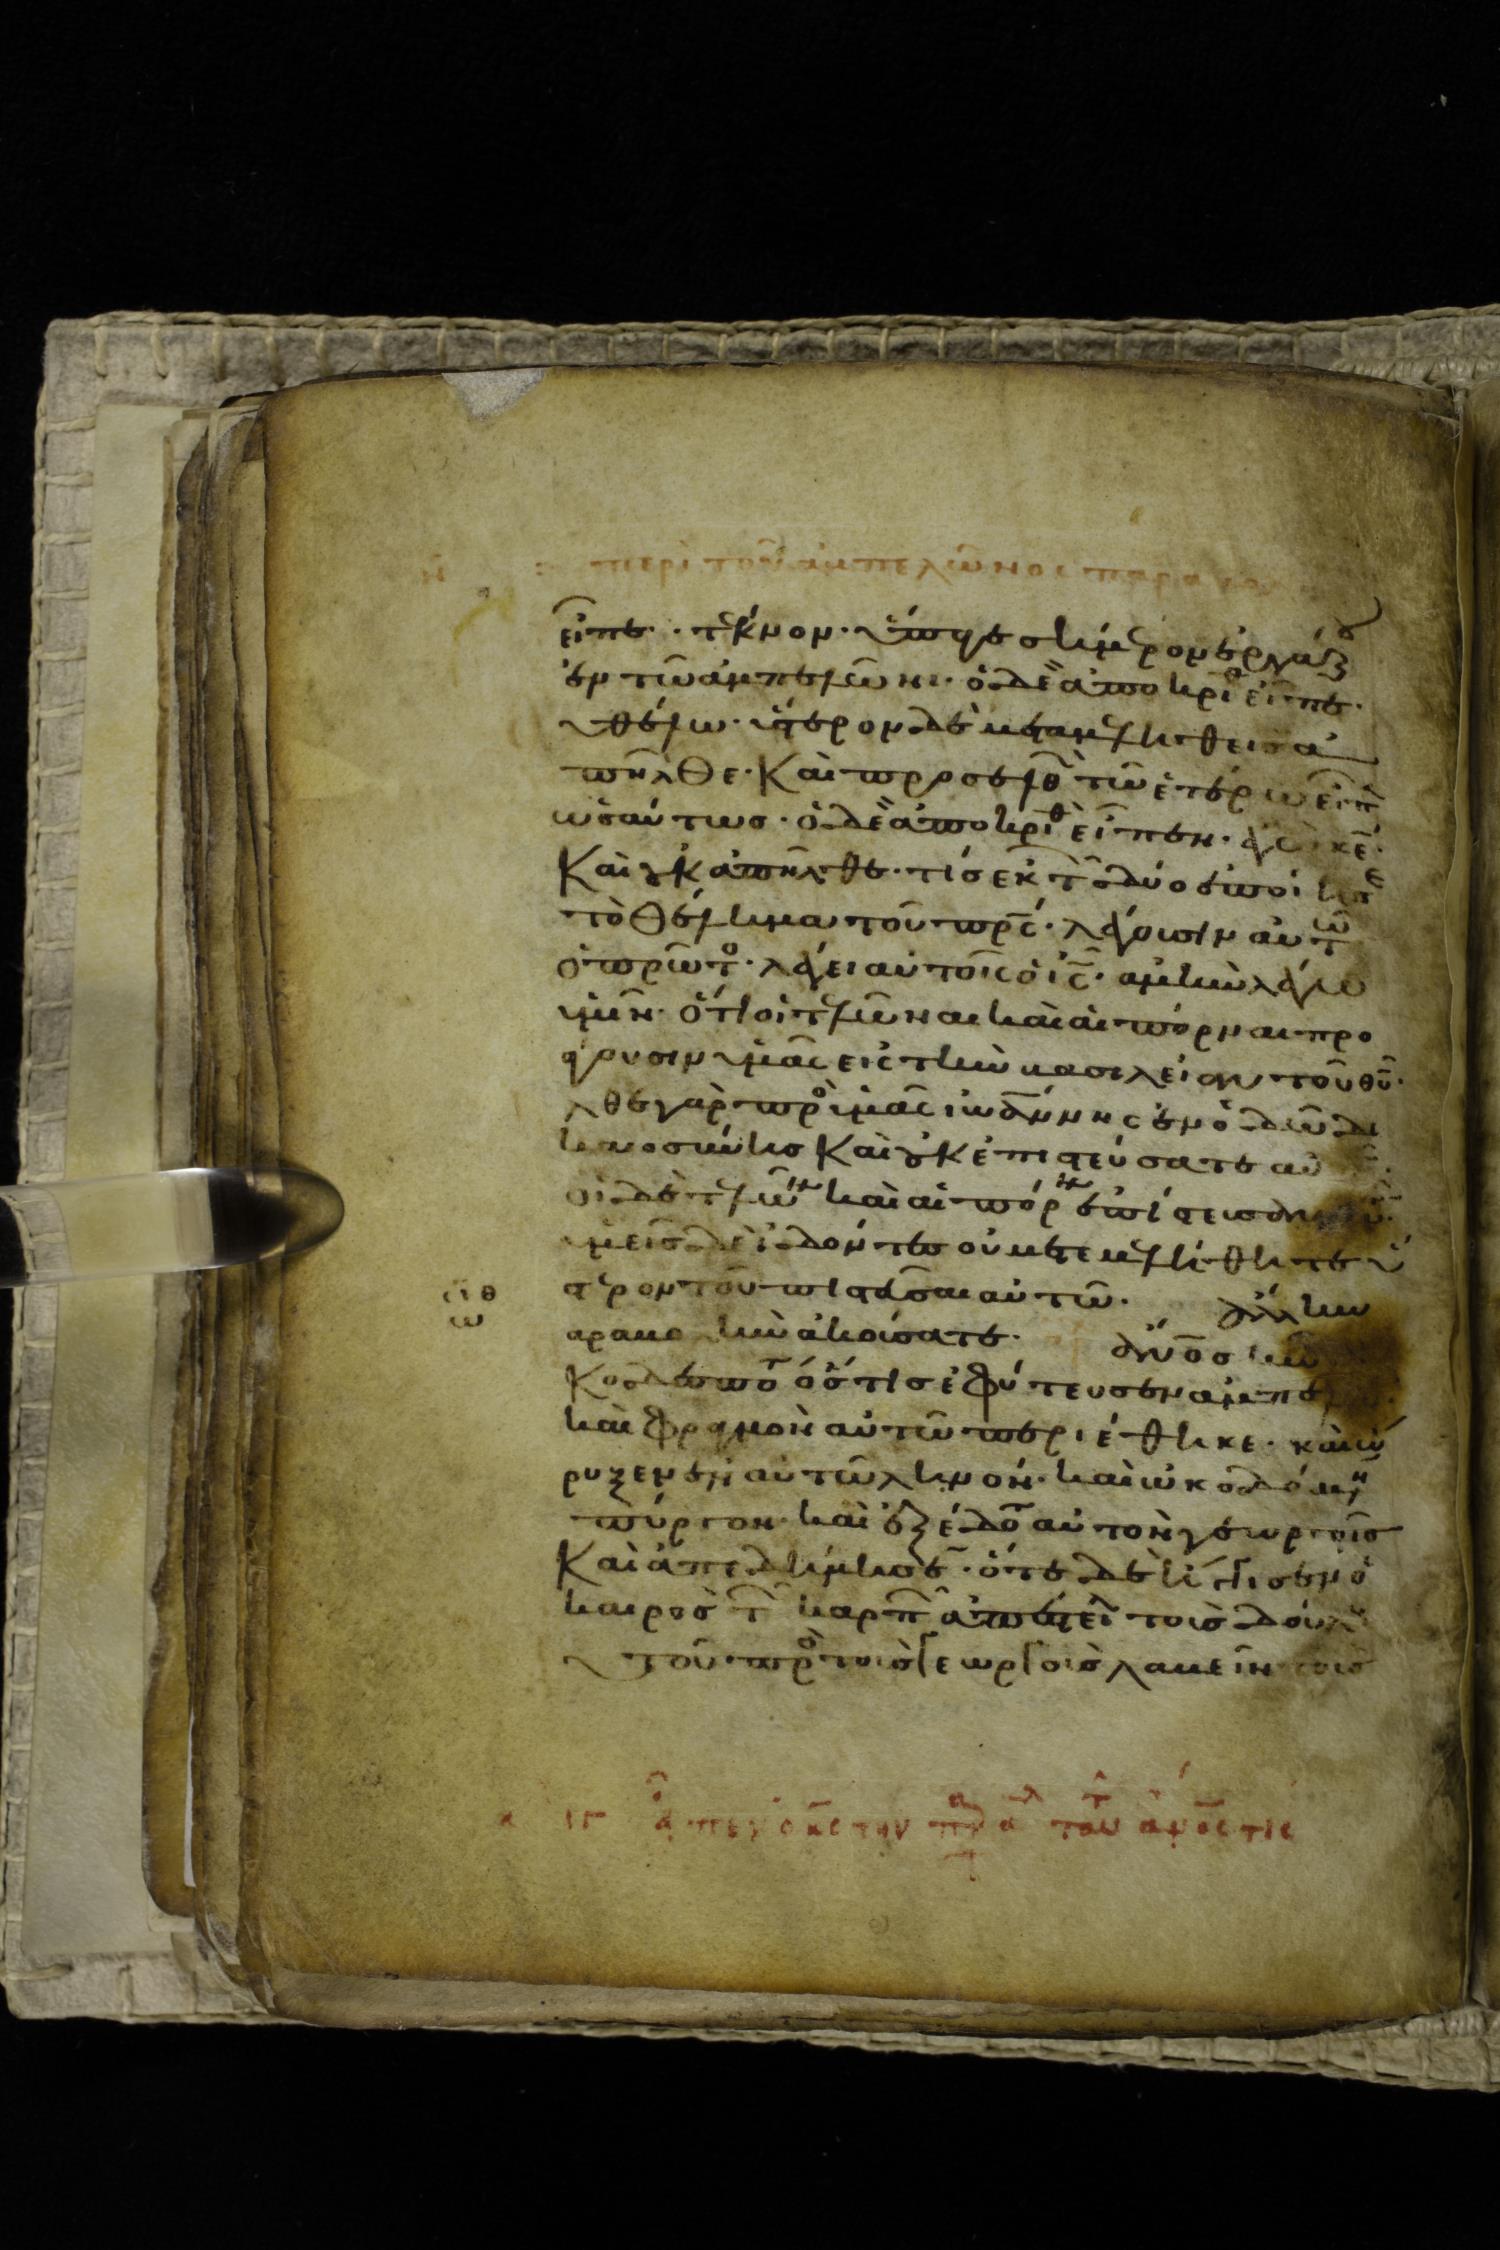 περὶ τοῦ ἀμπελῶνος παρα
εἶπε· τέκνον· ὕπαγε σήμερον ἐργάζου
ἐν τῶ ἀμπελῶνι· ὁ δὲ ἀποκριθ εἶπε·
οὐ θέλω· ὕστερον δὲ μεταμεληθεὶς ἀ
πῆλθε· Καὶ προσελθ τῶ ἑτέρω εἶπ
ὡσαύτως· ὁ δὲ ἀποκριθ εἶπεν· ἐγὼ κε·
Καὶ οὐκ ἀπῆλθε· τίς ἐκ τ δύο ἐποί
τὸ θέλημα τοῦ πρς· λέγουσιν αὐτῶ
ὁ πρῶτο· λέγει αὐτοῖς ὁ ις· ἀμὴν λέγω
ὑμῖν· ὅτι οἱ τελῶναι καὶ αἱ πόρναι προ
άγουσιν ὑμᾶς εἰς τὴν βασιλείαν τοῦ θυ·
λθε γὰρ πρὸ ὑμᾶς ἰωάννης ἐν ὁδῶ δι
καιοσύνης Καὶ οὐκ ἐπιστεύσατε αὐ
οἱ δὲ τελῶν καὶ αἱ πόρν ἐπίστευσαν
ὑμεῖς δὲ ἰδόντες οὐ μετεμελήθητε ὕ
στερον τοῦ πιστεῦσαι αὐτῶ· ἄλλην
αραβο ὴν ἀκούσατε· ἄνος
Κοδεσπο ὅστις ἐφύτευσεν ἀμπελ
καὶ φραγμὸν αὐτῶ περιέθηκε· καὶ ὤ
ρυξεν ἐν αὐτῶ ληνόν· καὶ ὠκοδόμη
πύργον· καὶ ἐξέδοτο αὐτὸν γεωργοῖς
Καὶ ἀπεδήμησε· ὅτε δὲ ἤγγισεν ὁ
καιρὸς τ καρπ ἀπέστει τοὺς δούλ
τοῦ πρὸ τοὺς γεωργοὺς λαβεῖν τοὺς
ειπεν ὁ κς την τ ανος τις